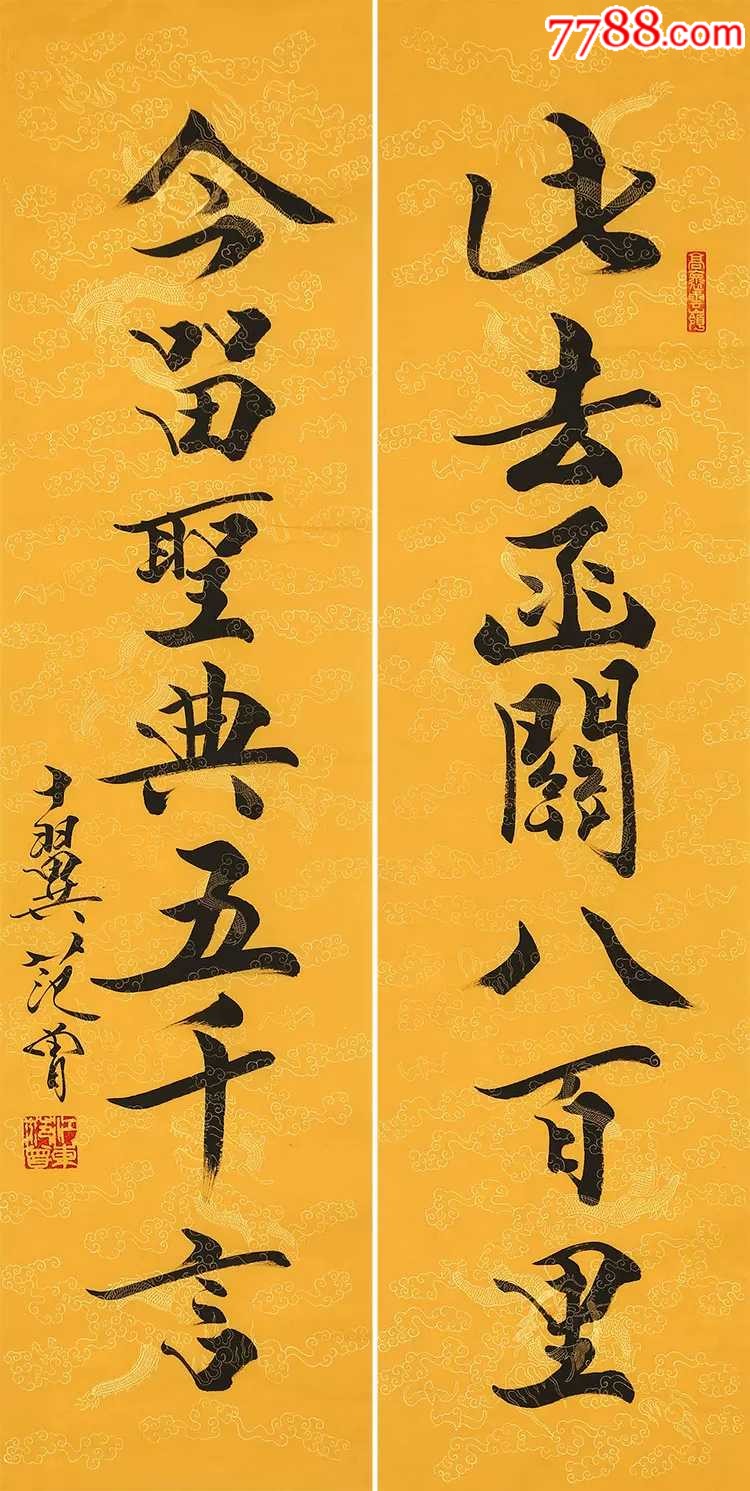 7788.com
此去函關八百里
今留聖典五千言
十翼范曾